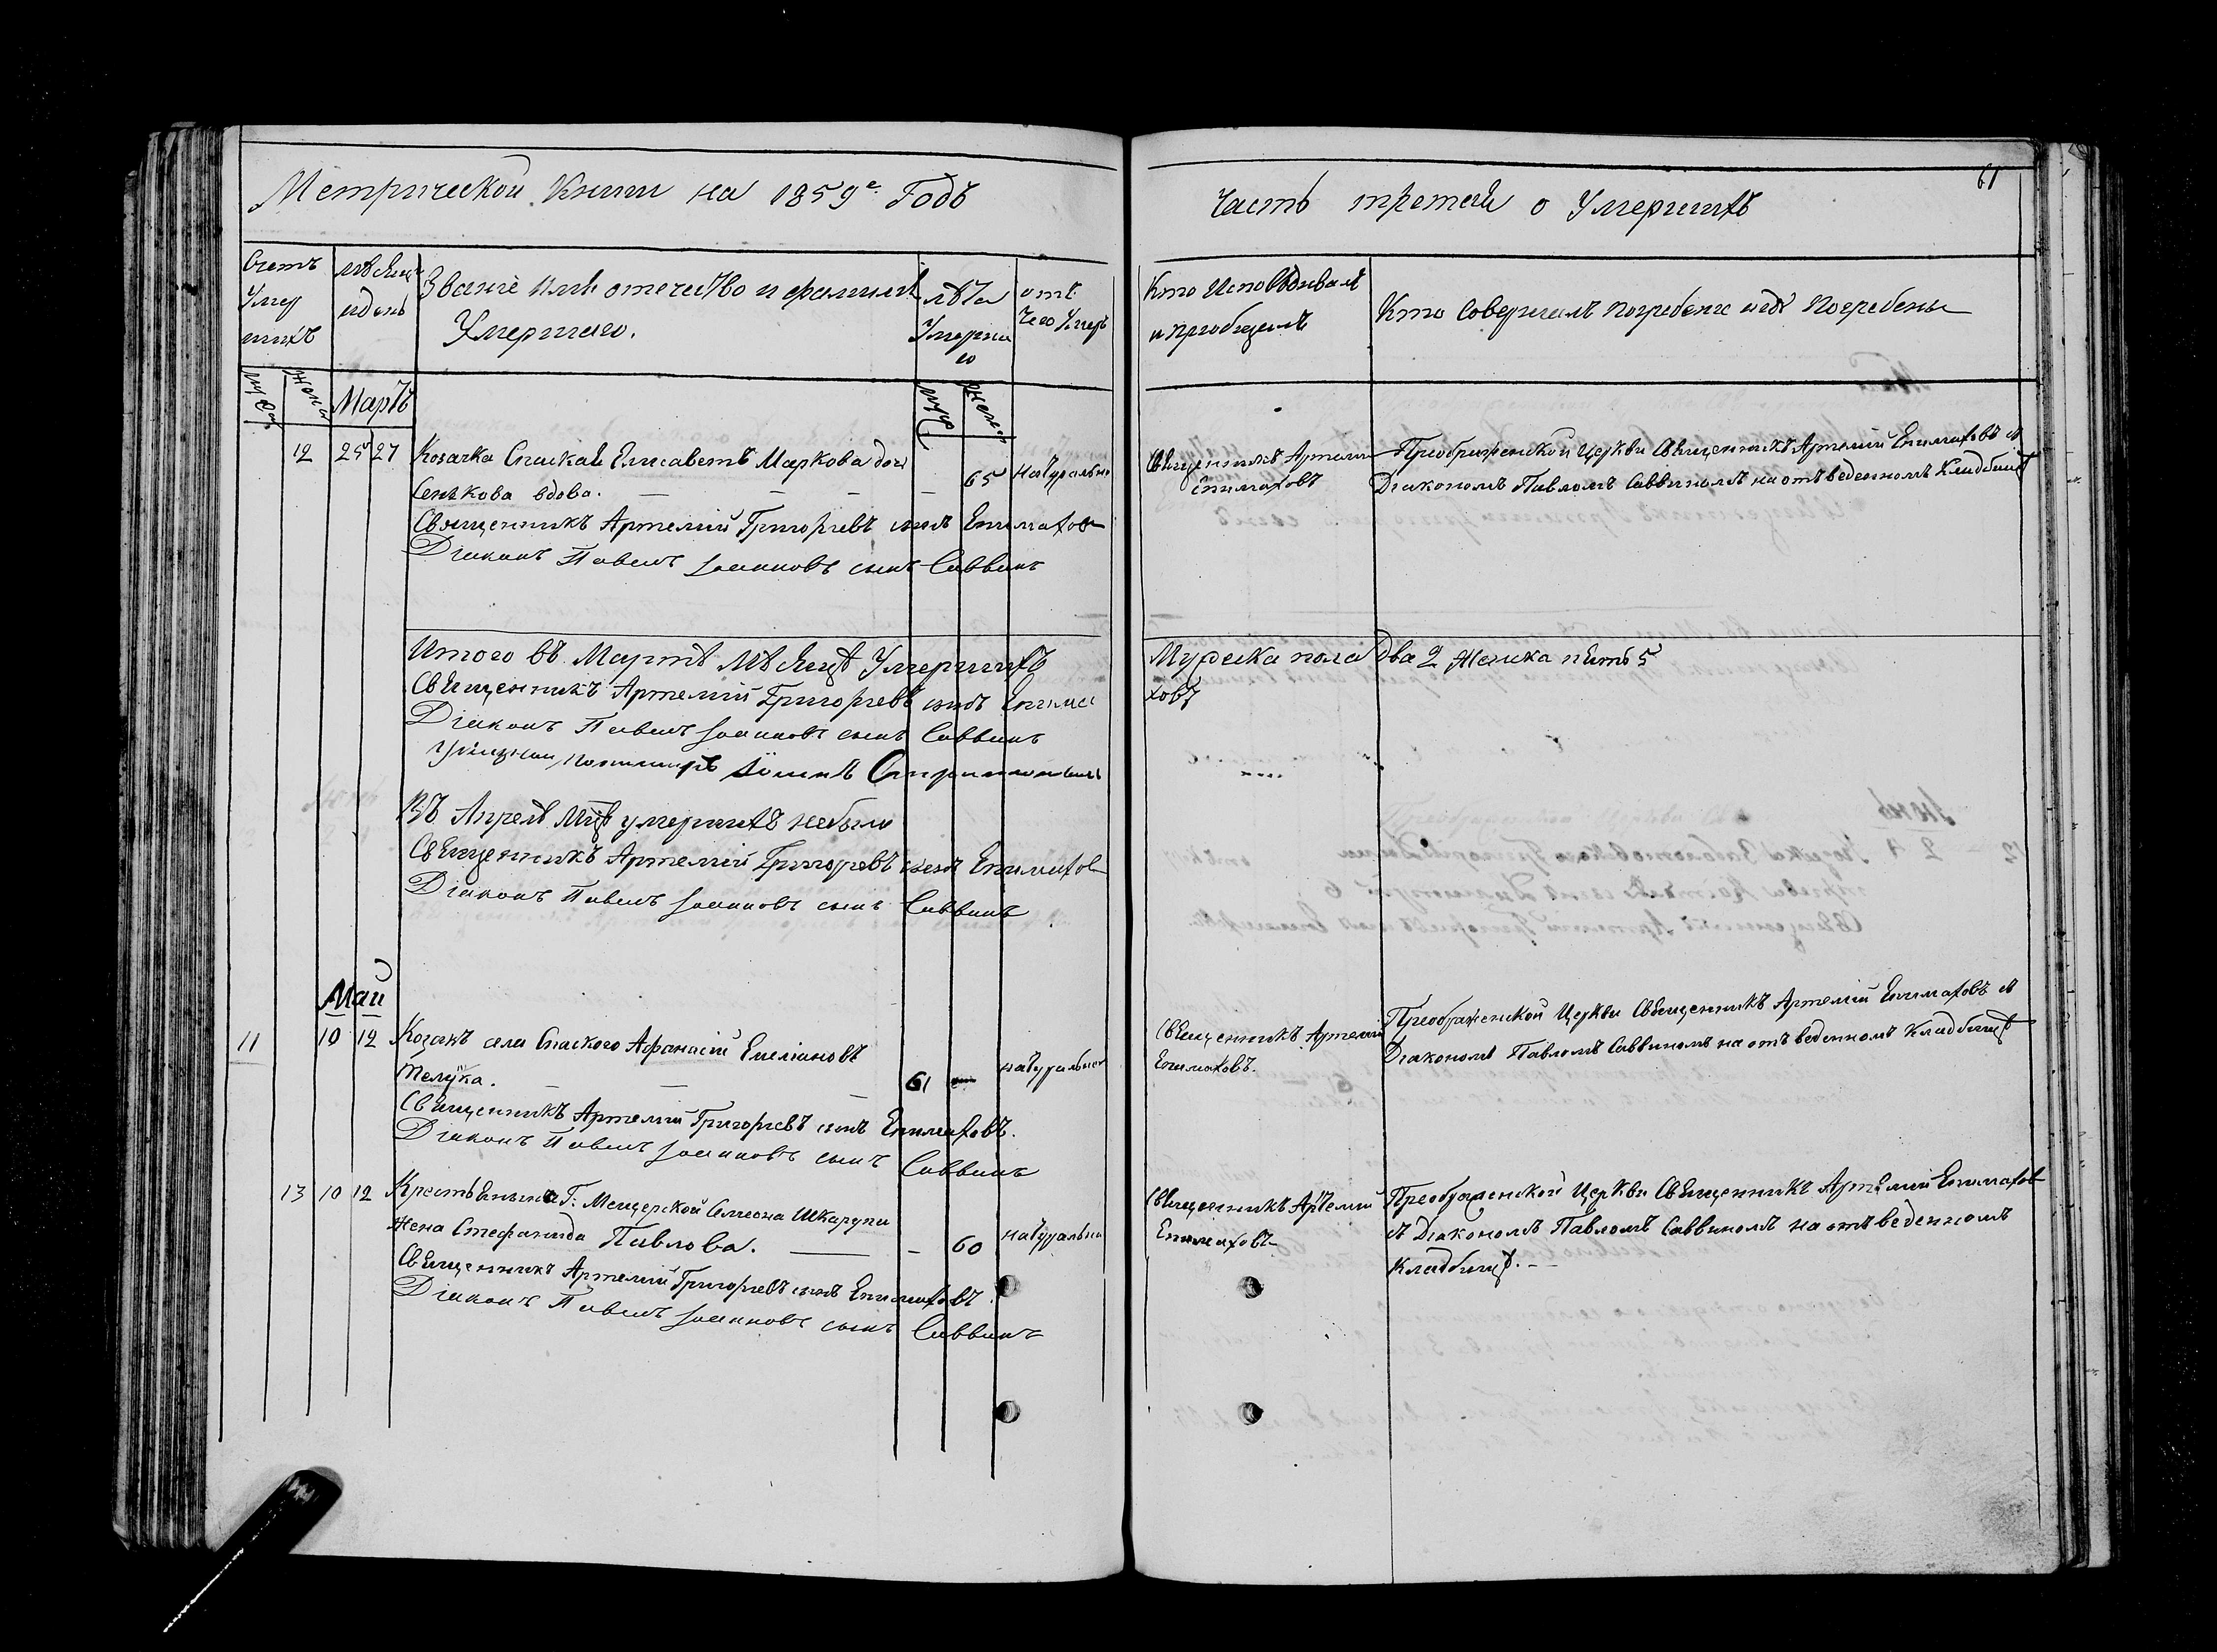 Метрической Книги на 1859й Годъ
Часть третья о Умершихъ
61
Счетъ Умершихъ
мѣсяцъ и день
Званіе имя отечество и фамилія Умершаго.
лѣта Умершаго
отъ чего Умеръ
Кто Исповѣдывалъ и пріобщалъ
Кто Совершалъ погребеніе и гдѣ Погребены
Мартъ
12 25 27 Козачка Спаская Елисаветъ Маркова дочь
Сенькова вдова. — — — — 65 натурально
Священникъ Артемій Григорьевъ сынъ Епимаховъ
Діаконъ Павелъ Іоанновъ сынъ Саввинъ
Священникъ Артемій
Епимаховъ
Преображенской Церкви Священникъ Артемій Епимаховъ съ
Діакономъ Павломъ Саввиномъ на отъведенномъ Кладбищѣ
Итого въ Мартѣ Мѣсяцѣ Умершихъ Мужеска пола Два 2 Женска пять 5
Священникъ Артемій Григорьевъ сынъ Епима
ховъ
Діаконъ Павелъ Іоанновъ сынъ Саввинъ
пономарь Іоаннъ
Въ Апрелѣ Мцѣ умершихъ небыло
Священникъ Артемій Григорьевъ сынъ Епимахов
Діаконъ Павелъ Іоанновъ сынъ Саввинъ
Май
11 10 12 Козакъ села Спаского Афанасій Емеліановъ
Телука. — — — 61 — натурально
Священникъ Артемій Григорьевъ сынъ Епимаховъ.
Діаконъ Павелъ Іоанновъ сынъ Саввинъ
Священникъ Артемій
Епимаховъ.
Преображенской Церкви Священникъ Артемій Епимаховъ съ
Діакономъ Павломъ Саввиномъ на отъведенномъ Кладбищѣ
13 10 12 Крестьянина Г: Мещерской Симеона Шкарупи
Жена Стефанида Павлова. — — 60 натурально
Священникъ Артемій Григорьевъ сынъ Епимаховъ.
Діаконъ Павелъ Іоанновъ сынъ Саввинъ
Священникъ Артемій
Епимаховъ
Преображенской Церкви Священникъ Артемій Епимахов
съ Діакономъ Павломъ Саввиномъ на отъведенномъ
Кладбищѣ. —